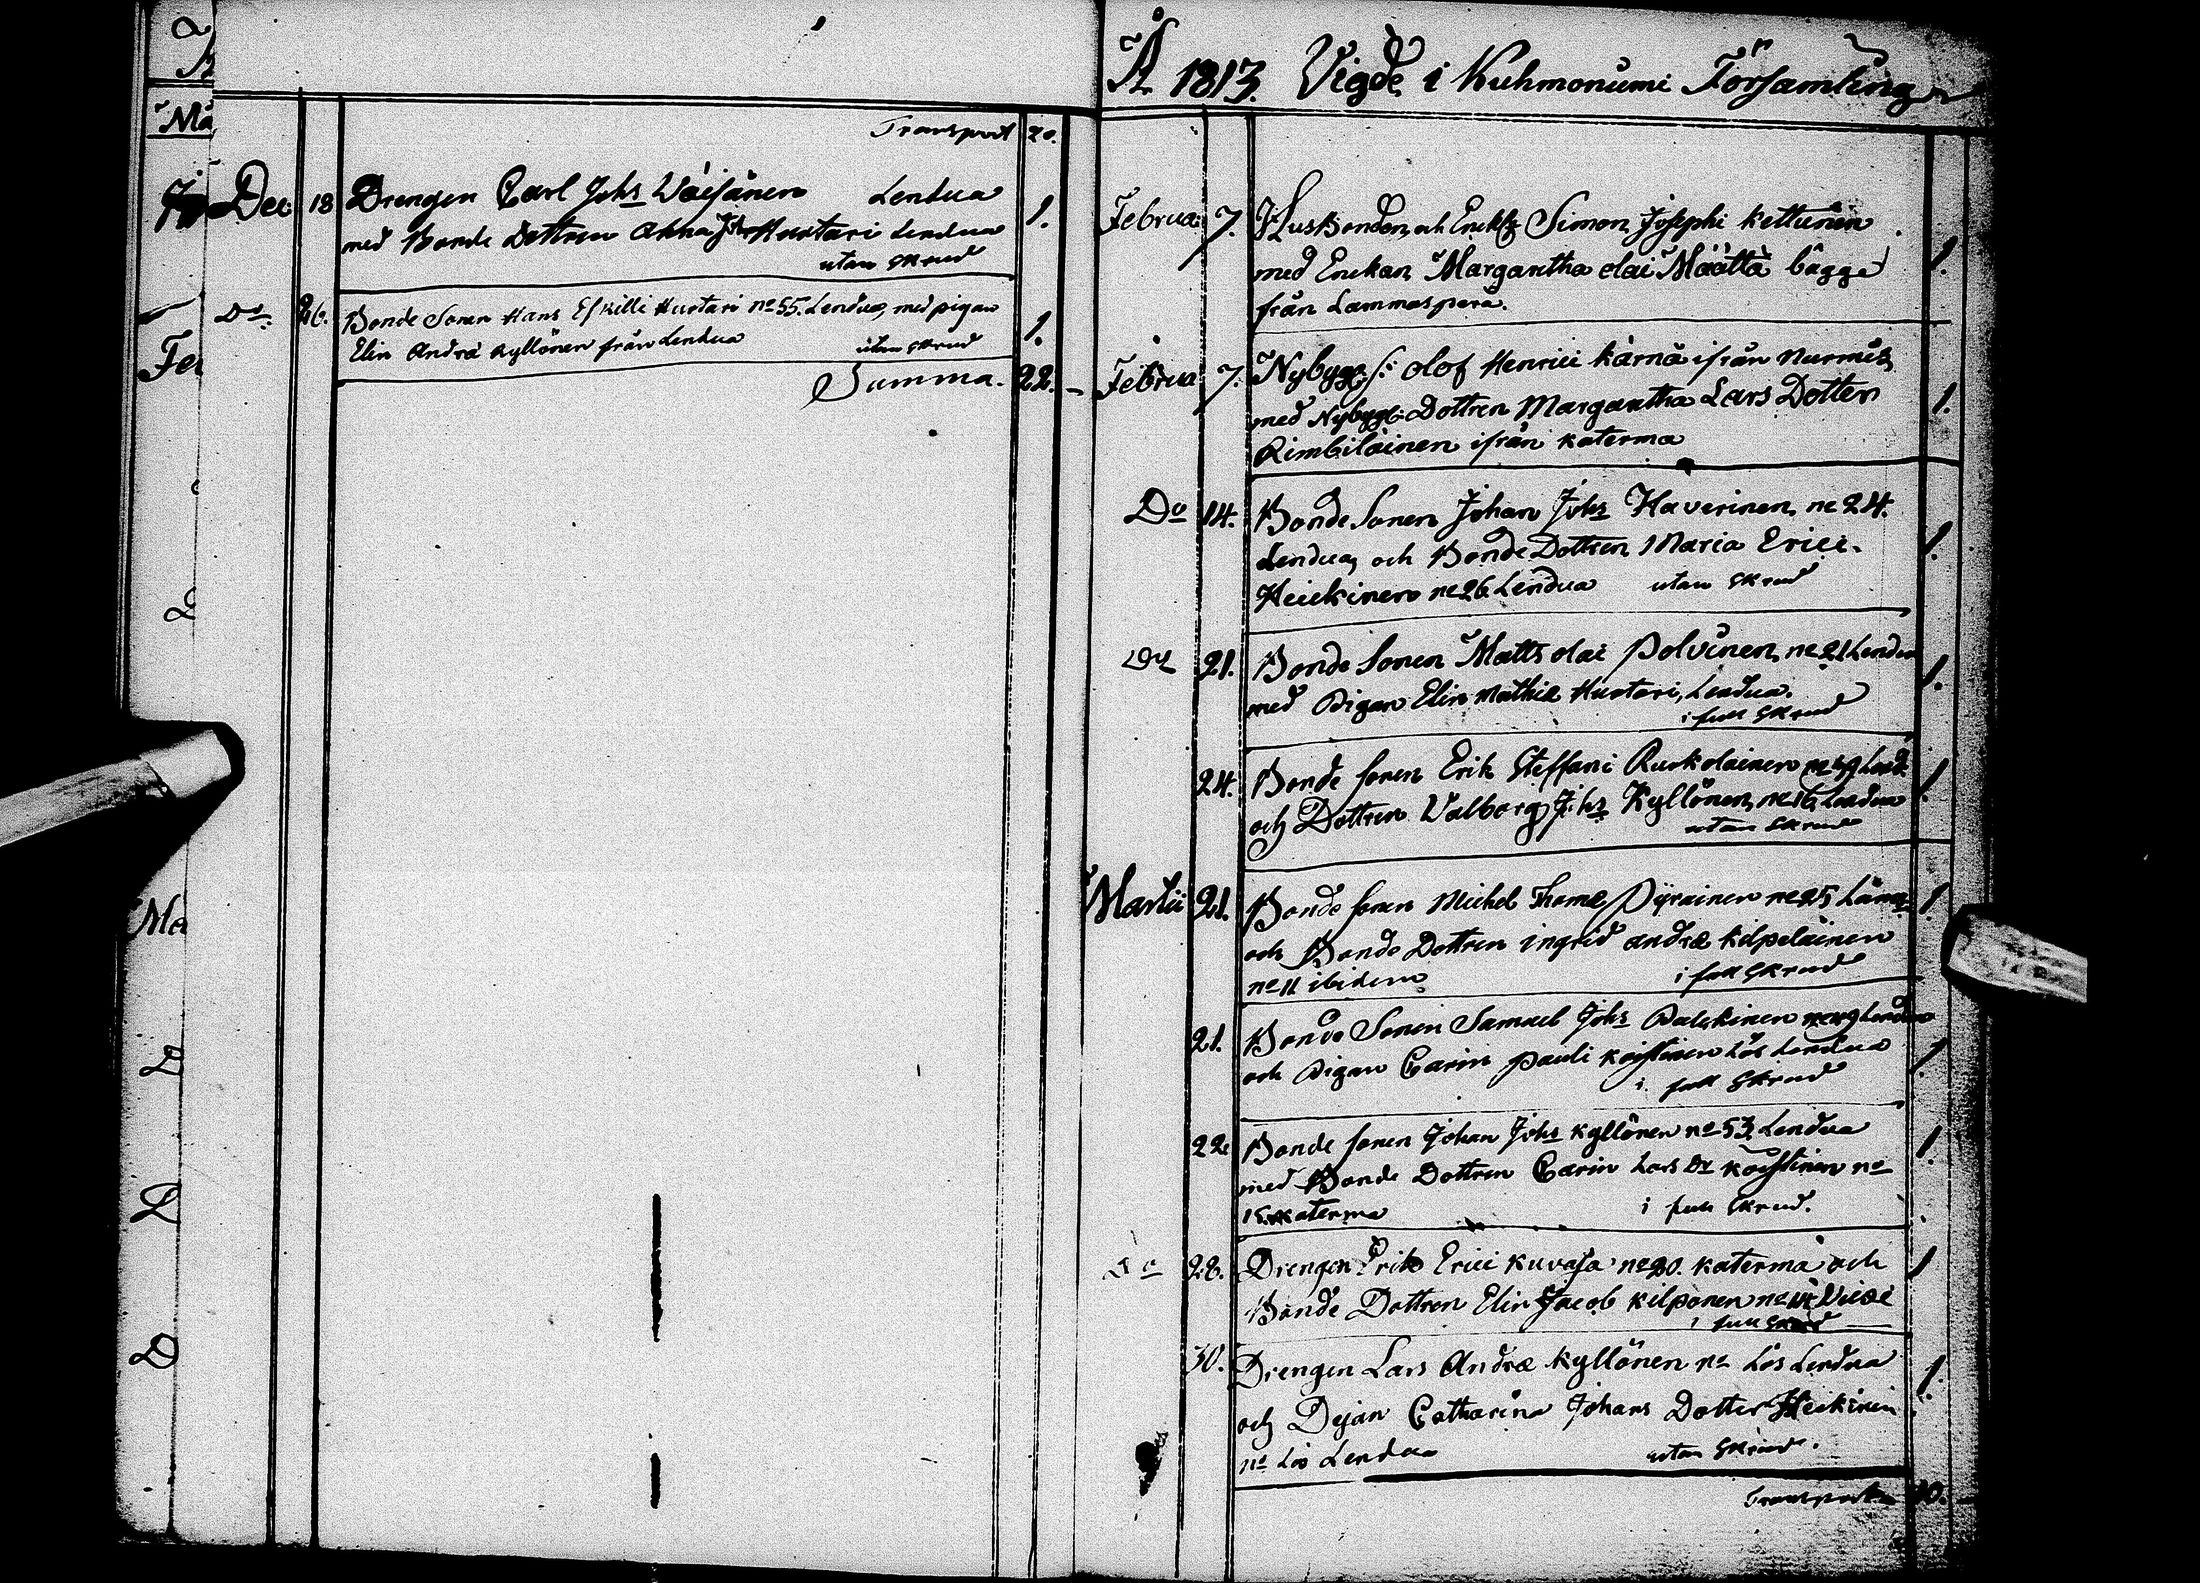 Transport 20.
Dec: 18 Drengen Carl Johs Wäisänen Lendua 1.
med Bonde Dottren Anna Johs Huotari Lendua
utan skrud
Do 26. Bonde Sonen Hans Eskilli Huotari no 55. Lendua, med pigan 1.
Elin Andræ Kyllönen från Lendua utan skrud
Summa. 22.
Å 1813. Vigde i Kuhmoniemi Församling
Februa: 7. Husbonden, och Enkl. Simon Josephi Kettunen 1.
med Enckan Margaretha Olai Määttä bägge
från Lammasperä.
Februa 7. Nybygg: S: Olof Henrici Kärnä ifrån Nurmis 1.
med Nybygg: Dottren Margaretha Lars Dotter
Rimbiläinen ifrån Katerma
Do 14. Bonde Sonen Johan Johs Haverinen no 24. 1.
Lendua, och Bonde Dottren Maria Erici
Heickinen no 26 Lendua utan skrud
Do 21. Bonde Sonen Matts Olai Polvinen, no 21 Lendua 1.
med Pigan Elin Mathiæ Huotari, Lendua.
i full skrud
24. Bonde sonen Erik Steffani Ruokolainen no 49 Lend: 1.
och Dottren Valborg Johs Kyllönen, no 16 Lendua
utan skrud
Martii 21. Bonde sonen Michel Thomæ Pyrainen no 25 1.
och Bonde Dottren ingrid andræ Kilpeläinen
no 11 ibidem i full skrud
21. Bonde Sonen Samuel Johs Lendua 1.
och Pigan Carin Pauli Koistinen Lös Lendua
i full skrud
22. Bonde sonen Johan Johs Kyllönen no 53. Lendua 1.
med Bonde Dottren Carin Lars Dr Koistinen no
15. Katerma i full skrud.
Do 28. Drengen Erik Erici Kuvaja no 20. Katerma och 1
Bonde Dottren Elin Jacob Kilponen no
i full skrud
30. Drengen Lars Andræ Kyllönen no Lös Lendua 1.
och Dejan Catharina Johans Dotter Heikinen
no Lös Lendua utan skrud.
Transport 10.